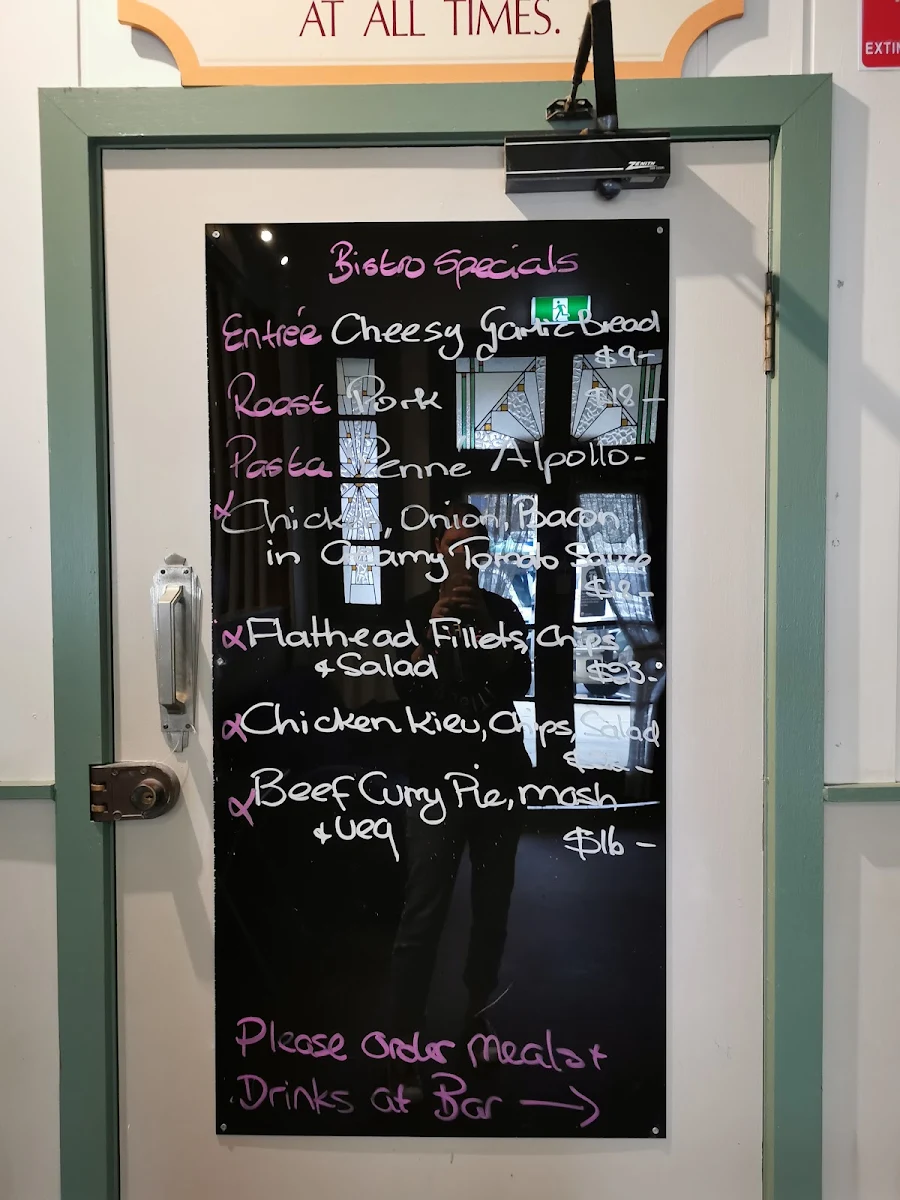 AT ALL TIMES.
EXTIN
ZENITH
Bistro Specials
Entrée Cheesy Garlic Bread
$9-
Roast Pork $18-
Pasta Penne Alpollo-
Chicken, Onion, Bacon
in Creamy Tomato Sauce
$18-
Flathead Fillets, Chips
& Salad $23-
Chicken Kiev, Chips, Salad
Beef Curry Pie, mash
& Veg
$16-
Please order meals +
Drinks at Bar →